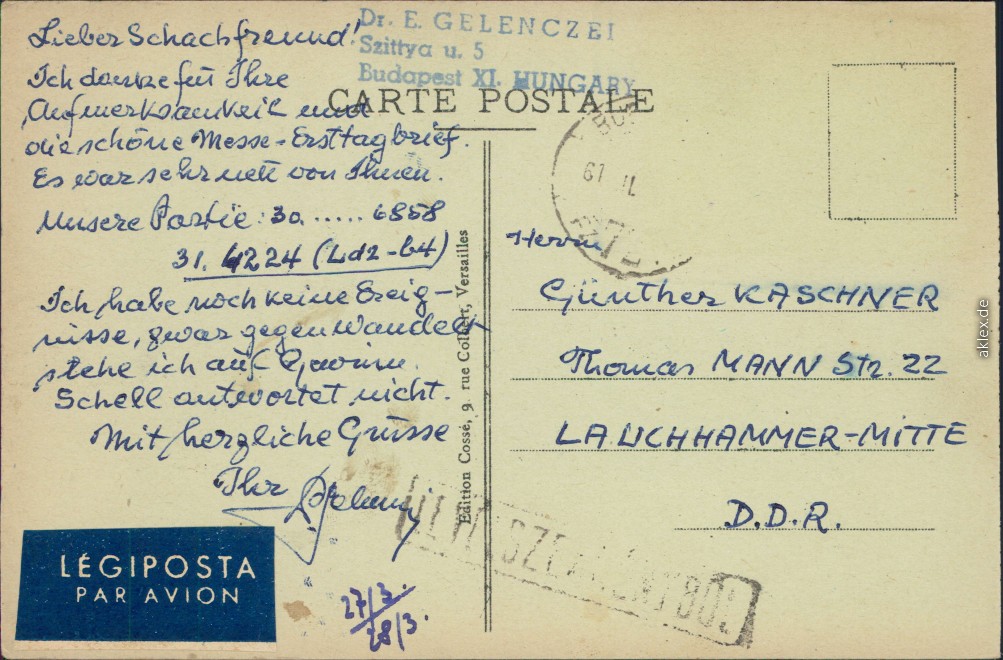 Dr. E. GELENCZEI
Szittya u. 5
Budapest XI. HUNGARY
CARTE POSTALE
Lieber Schachfreund!
Ich danke für Ihre
Aufmerksamkeit und
die schöne Messe-Ersttagbrief.
Es war sehr nett von Ihnen.
Unsere Partie: 30. ..... 6858
31. 4224 (Ld2-b4)
Ich habe noch keine Ereig-
nisse, zwar gegen Wandelt
stehe ich auf Gewinn.
Schell antwortet nicht.
Mit herzliche Grüsse
Ihr
LÉGIPOSTA
PAR AVION
27/3.
28/3.
Edition Cossé, 9, rue Colbert, Versailles
61
Herrn
Günther KASCHNER
Thomas MANN Str. 22
LAUCHHAMMER-MITTE
D.D.R.
aklex.de